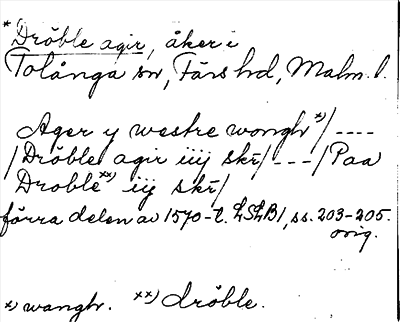 * Dröble agir, åker i
Tolånga sn, Färs hd, Malm. l.
Ager y westre wongh x)/----
/Dröble agir iiij skr/---/Paa
Droble xx) iij skr/
förra delen av 1570-t. LSLB1, ss. 203-205.
orig.
x) wangh. xx) dröble.